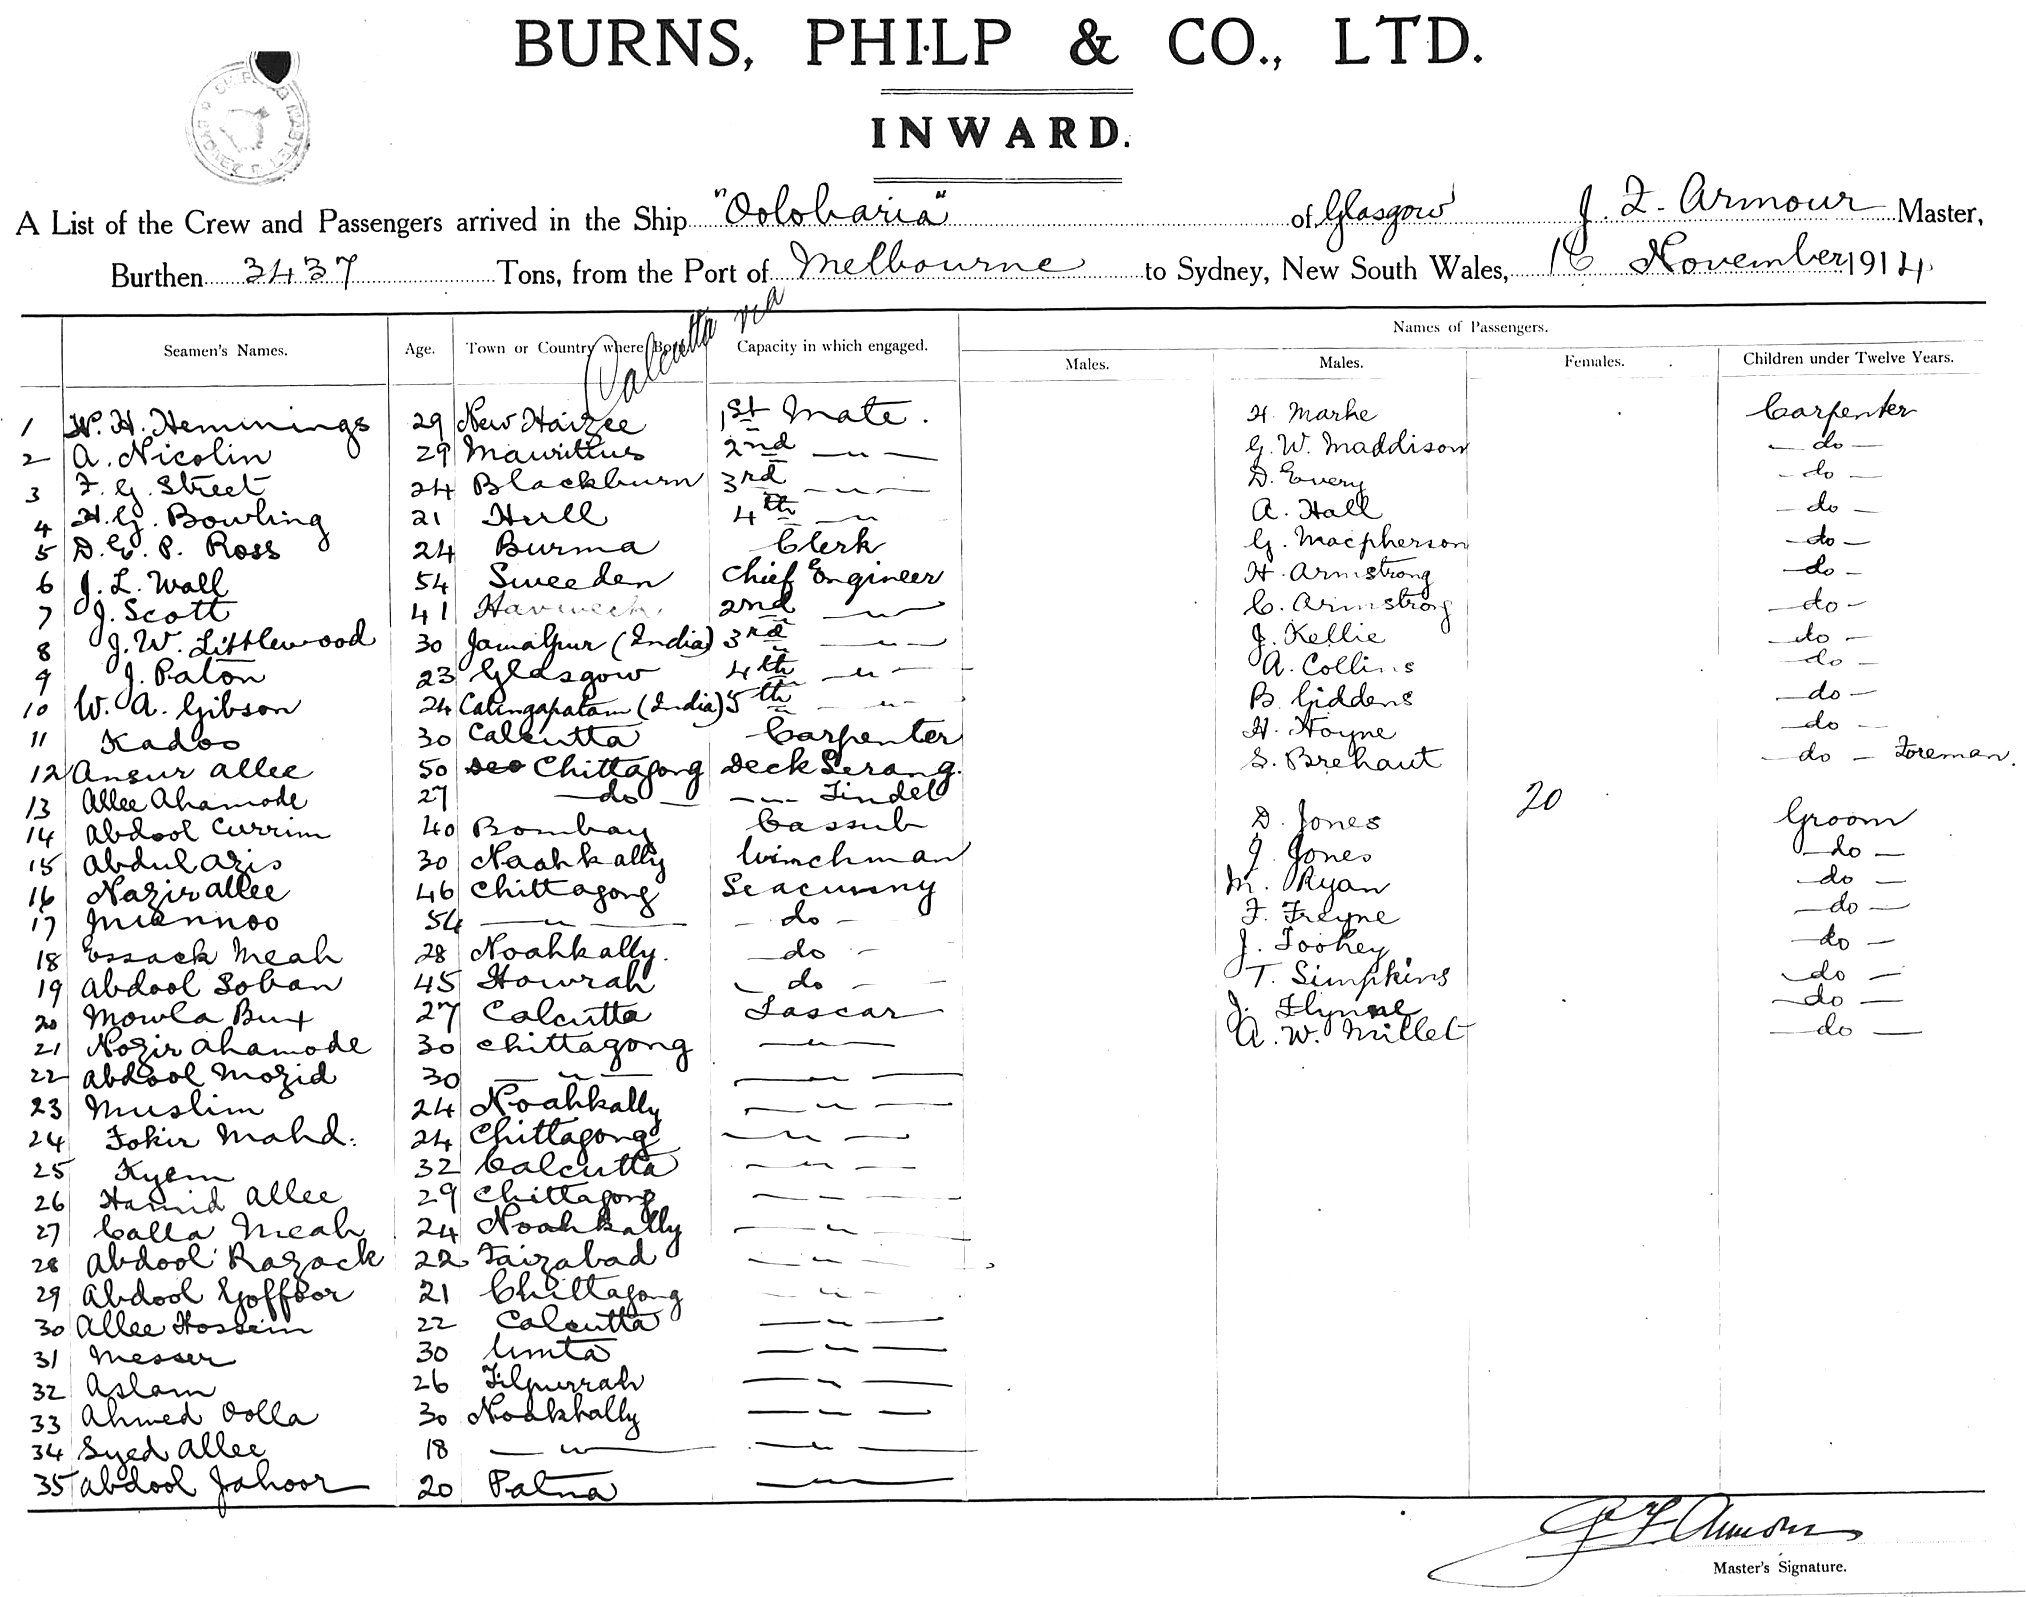 BURNS, PHILP & CO., LTD.
INWARD.
A List of the Crew and Passengers arrived in the Ship "Oolobaria" of Glasgow J. F. Armour Master,
Burthen 3437 Tons, from the Port of Melbourne to Sydney, New South Wales, 16 November 1914
Calcutta via
Names of Passengers.
Seamen's Names. Age. Town or Country where Born Capacity in which engaged. Males. Males. Females. Children under Twelve Years.
1 W. H. Hemmings 29 New 1st Mate. H. Marke Carpenter
2 A. Nicolin 29 Mauritius 2nd — " — G. W. Maddison — do —
3 F. G. Street 24 Blackburn 3rd — " — D. Every - do -
4 H. G. Bowling 21 Hull 4th — " A. Hall — do —
5 D. E. P. Ross 24 Burma Clerk G. Macpherson — do —
6 J. L. Wall 54 Sweeden Chief Engineer H. Armstrong — do -
7 J. Scott 41 2nd — " — C. Armstrong — do -
8 J. W. Littlewood 30 Jamalpur (India) 3rd — " — J. Kellie — do —
9 J. Paton 23 Glasgow 4th — " — A. Collins — do —
10 W. A. Gibson 24 Calingapatam (India) 5th — " — B. Giddens — do —
11 Kadoo 30 Calcutta Carpenter H. Hoyne — do —
12 Ansur Allee 50 Chittagong Deck Serang. S. Brehaut — do — Foreman.
13 Allee Ahamode 27 — do — — " — Tindel 20
14 Abdool Currim 40 Bombay Cassub D. Jones Groom
15 Abdul Azis 30 Noahkally Winchman J. Jones — do —
16 Nazir Allee 46 Chittagong Seacunny M. Ryan — do —
17 Miannoo 54 — " — - do - F. Freyne — do —
18 Essack Meah 28 Noahkally. — do - J. Toohey — do —
19 Abdool Soban 45 Howrah — do — T. Simpkins — do —
20 Mowla Bux 27 Calcutta Lascar J. Flynne — do —
21 Nozir Ahamode 30 Chittagong — " — A. W. Millet — do —
22 Abdool Mozid 30 — " — — " —
23 Muslim 24 Noahkally — " —
24 Fokir Mahd. 24 Chittagong — " —
25 Kyem 32 Calcutta — " —
26 Hamid Allee 29 Chittagong — " —
27 Calla Meah 24 Noahkally — " —
28 Abdool Razack 22 Faizabad — " —
29 Abdool Goffoor 21 Chittagong — " —
30 Allee Hossein 22 Calcutta — " —
31 Messer 30 Umta — " —
32 Aslam 26 Tilpurrah — " —
33 Ahmed Oolla 30 Noakhally — " —
34 Syed Allee 18 — " — — " —
35 Abdool Jahoor 20 Patna — " —
J F Armour
Master's Signature.